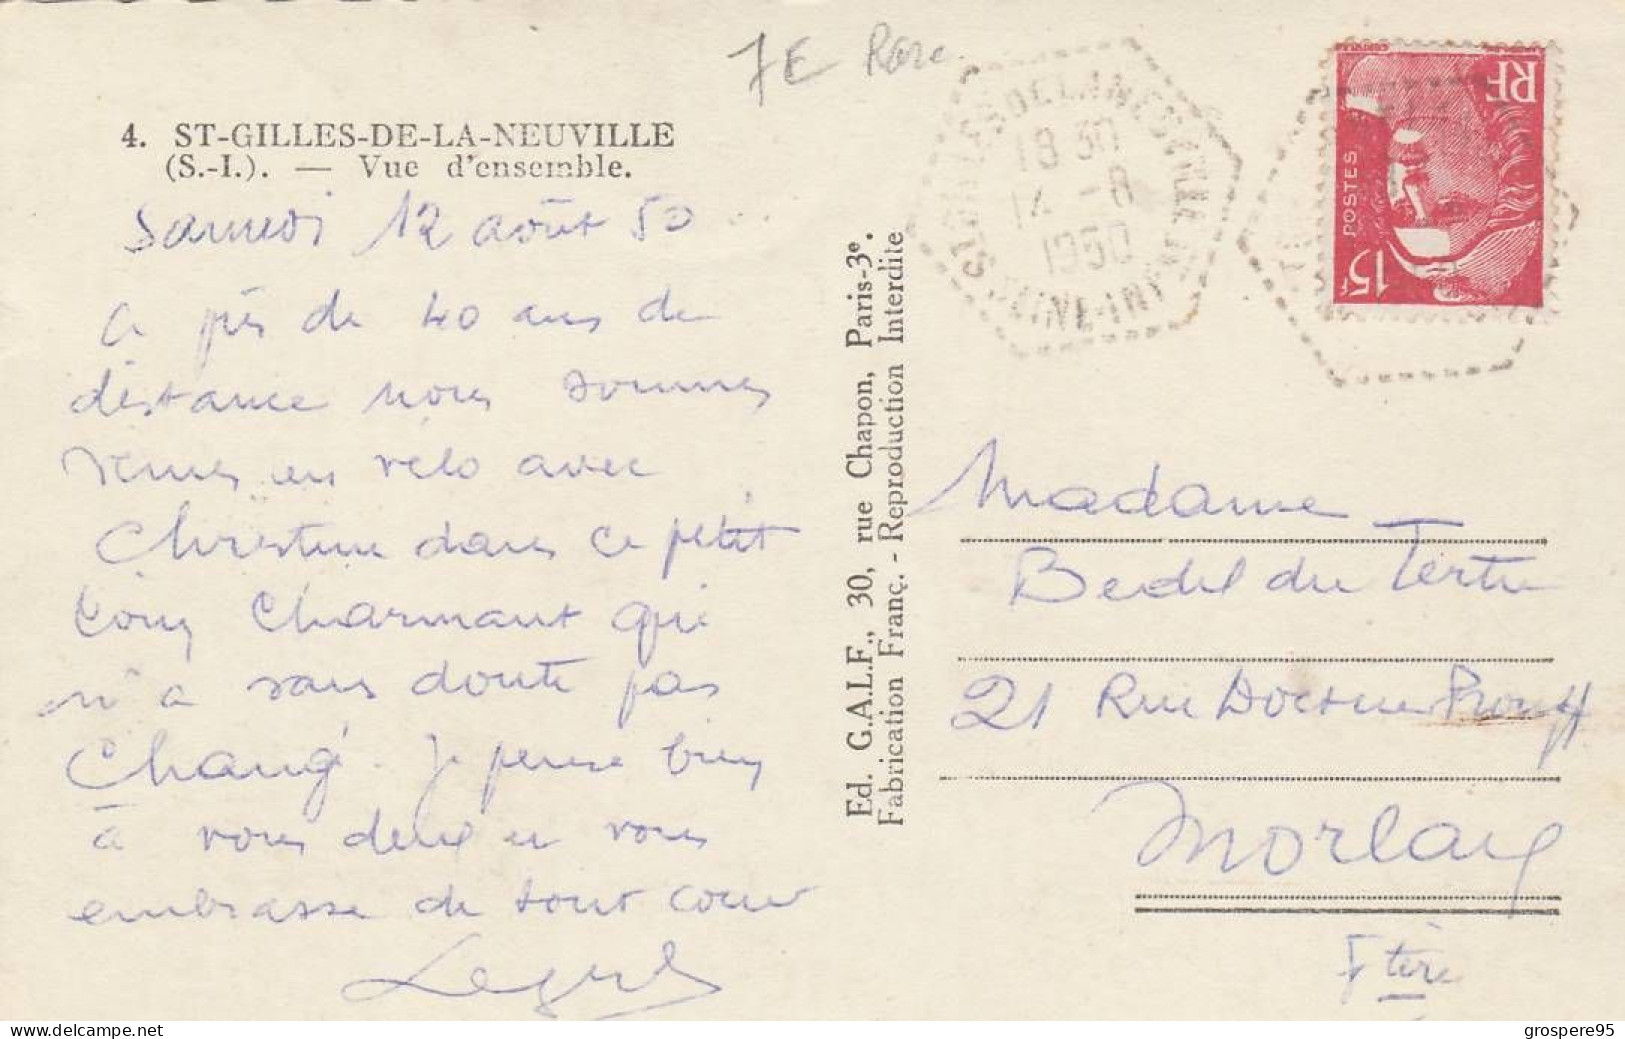 7E Rare
4. ST-GILLES-DE-LA-NEUVILLE
(S.-I.). — Vue d'ensemble.
Samedi 12 août 50
a près de 40 ans de
distance nous sommes
venus en vélo avec
Christine dans ce petit
coin charmant qui
n'a sans doute pas
changé. Je pense bien
à vous deux et vous
embrasse de tout coeur
Ed. G.A.L.F., 30, rue Chapon, Paris-3e.
Fabrication Franç. - Reproduction Interdite
18 30
14 -8
1950
SEINE-INFRE
RF
POSTES
15F
Madame
Bedel du Tertre
21 Rue Docteur Prouff
Morlaix
Ftère
grospere95